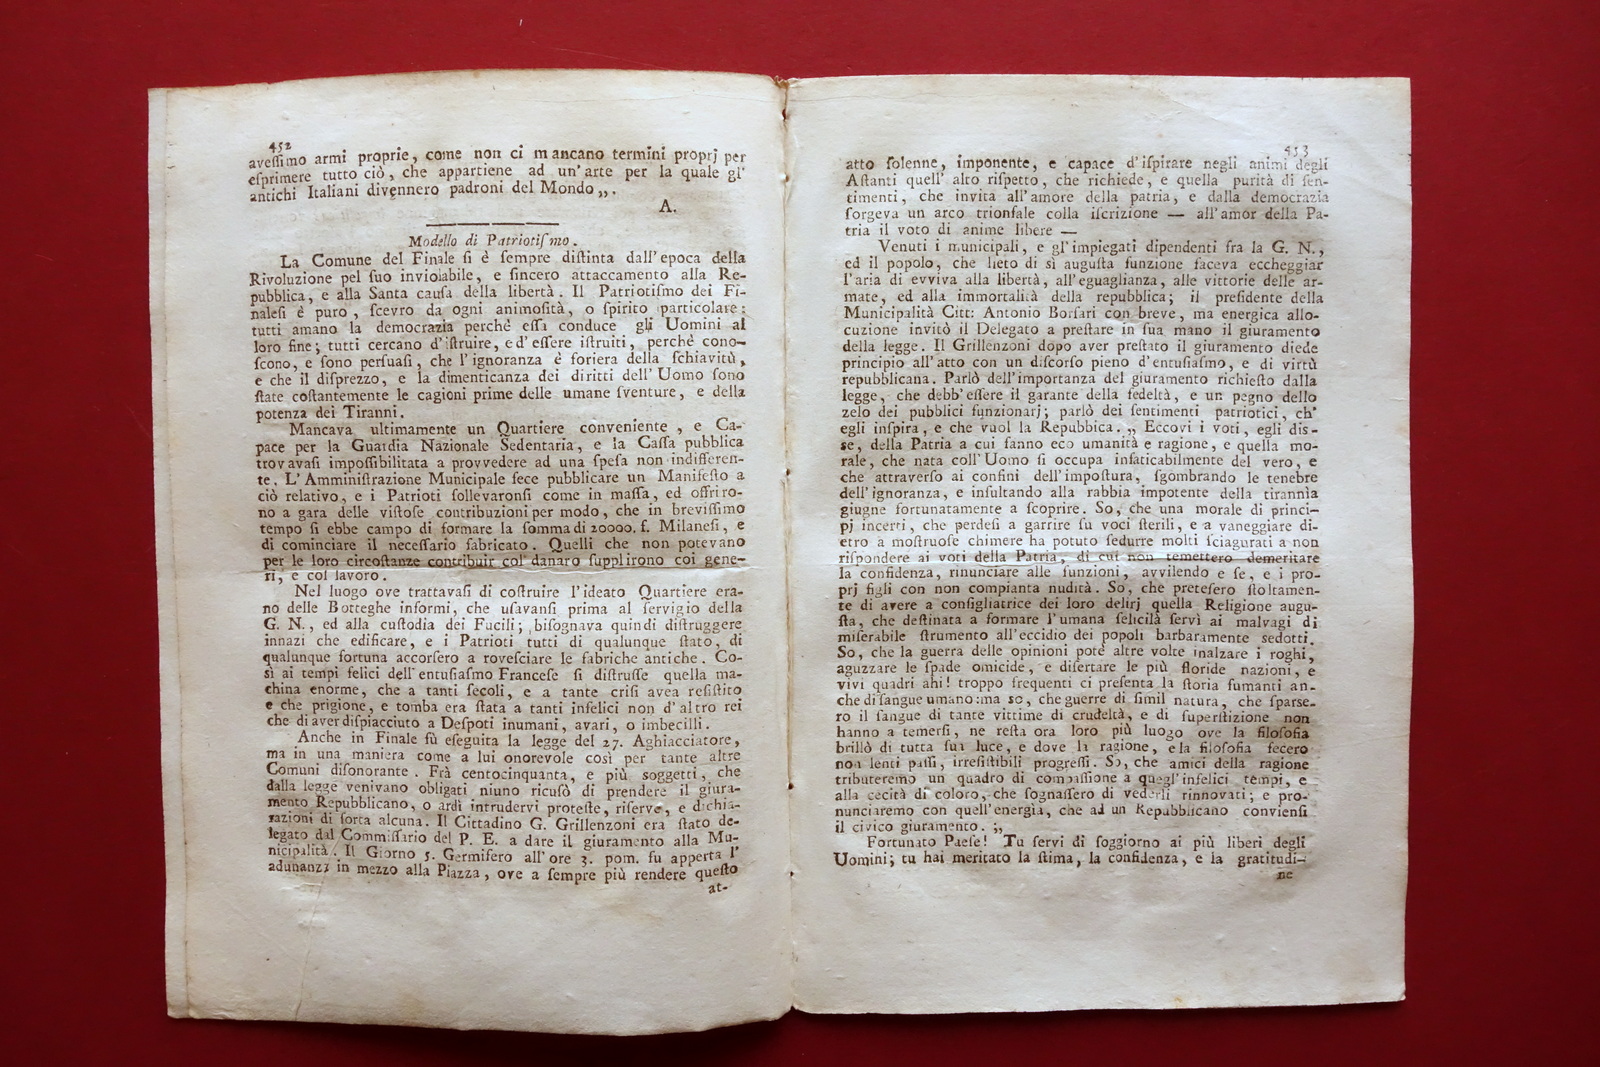 452
aveſſimo armi proprie, come non ci mancano termini proprj per
eſprimere tutto ciò, che appartiene ad un'arte per la quale gl'
antichi Italiani divennero padroni del Mondo „.
A.
Modello di Patriotiſmo.
La Comune del Finale ſi è ſempre diſtinta dall'epoca della
Rivoluzione pel ſuo inviolabile, e ſincero attaccamento alla Re-
pubblica, e alla Santa cauſa della libertà. Il Patriotiſmo dei Fi-
naleſi è puro, ſcevro da ogni animoſità, o ſpirito particolare:
tutti amano la democrazia perchè eſſa conduce gli Uomini al
loro fine; tutti cercano d'iſtruire, ed'eſſere iſtruiti, perchè cono-
ſcono, e ſono perſuaſi, che l'ignoranza è foriera della ſchiavitù,
e che il diſprezzo, e la dimenticanza dei diritti dell'Uomo ſono
ſtate coſtantemente le cagioni prime delle umane ſventure, e della
potenza dei Tiranni.
Mancava ultimamente un Quartiere conveniente, e Ca-
pace per la Guardia Nazionale Sedentaria, e la Caſſa pubblica
trovavaſi impoſſibilitata a provvedere ad una ſpeſa non indifferen-
te. L'Amminiſtrazione Municipale fece pubblicare un Manifeſto a
ciò relativo, e i Patrioti ſollevaronſi come in maſſa, ed offriro-
no a gara delle viſtoſe contribuzioni per modo, che in breviſſimo
tempo ſi ebbe campo di formare la ſomma di 20000. ſ. Milaneſi, e
di cominciare il neceſſario fabbricato. Quelli che non potevano
per le loro circoſtanze contribuir col danaro ſupplirono coi gene-
ri, e col lavoro.
Nel luogo ove trattavaſi di coſtruire l'ideato Quartiere era-
no delle Botteghe informi, che uſavanſi prima al ſervigio della
G. N., ed alla cuſtodia dei Fucili; biſognava quindi diſtruggere
innazi che edificare, e i Patrioti tutti di qualunque ſtato, di
qualunque fortuna accorſero a roveſciare le fabbriche antiche. Co-
ſì ai tempi felici dell'entuſiaſmo Franceſe ſi diſtruſſe quella ma-
china enorme, che a tanti ſecoli, e a tante criſi avea reſiſtito
e che prigione, e tomba era ſtata a tanti infelici non d'altro rei
che di aver diſpiacciuto a Deſpoti inumani, avari, o imbecilli.
Anche in Finale fù eſeguita la legge del 27. Aghiacciatore,
ma in una maniera come a lui onorevole così per tante altre
Comuni diſonorante. Frà centocinquanta, e più ſoggetti, che
dalla legge venivano obligati niuno ricuſò di prendere il giura-
mento Repubblicano, o ardì intrudervi proteſte, riſerve, e dichia-
razioni di ſorta alcuna. Il Cittadino G. Grillenzoni era ſtato de-
legato dal Commiſſario del P. E. a dare il giuramento alla Mu-
nicipalità. Il Giorno 5. Germifero all'ore 3. pom. fu apperta l'
adunanza in mezzo alla Piazza, ove a ſempre più rendere queſto
at-
453
atto ſolenne, imponente, e capace d'iſpirare negli animi degli
Aſtanti quell'alto riſpetto, che richiede, e quella purità di ſen-
timenti, che invita all'amore della patria, e dalla democrazia
ſorgeva un arco trionfale colla iſcrizione — all'amor della Pa-
tria il voto di anime libere —
Venuti i municipali, e gl'impiegati dipendenti fra la G. N.,
ed il popolo, che lieto di sì auguſta funzione faceva eccheggiar
l'aria di evviva alla libertà, all'eguaglianza, alle vittorie delle ar-
mate, ed alla immortalità della repubblica; il preſidente della
Municipalità Citt: Antonio Borſari con breve, ma energica allo-
cuzione invitò il Delegato a preſtare in ſua mano il giuramento
della legge. Il Grillenzoni dopo aver preſtato il giuramento diede
principio all'atto con un diſcorſo pieno d'entuſiaſmo, e di virtù
repubblicana. Parlò dell'importanza del giuramento richieſto dalla
legge, che debb'eſſere il garante della fedeltà, e un pegno dello
zelo dei pubblici funzionarj; parlò dei ſentimenti patriotici, ch'
egli inſpira, e che vuol la Repubbica. „ Eccovi i voti, egli diſ-
se, della Patria a cui fanno eco umanità e ragione, e quella mo-
rale, che nata coll'Uomo ſi occupa infaticabilmente del vero, e
che attraverſo ai confini dell'impoſtura, ſgombrando le tenebre
dell'ignoranza, e inſultando alla rabbia impotente della tirannìa
giugne fortunatamente a ſcoprire. So, che una morale di princi-
pj incerti, che perdeſi a garrire ſu voci ſterili, e a vaneggiare di-
etro a moſtruoſe chimere ha potuto ſedurre molti ſciagurati a non
riſpondere ai voti della Patria, di cui non temettero demeritare
la confidenza, rinunciare alle funzioni, avvilendo e ſe, e i pro-
prj figli con non compianta nudità. So, che preteſero ſtoltamen-
te di avere a conſigliatrice dei loro delirj quella Religione augu-
ſta, che deſtinata a formare l'umana felicilà ſervì ai malvagi di
miſerabile ſtrumento all'eccidio dei popoli barbaramente sedotti.
So, che la guerra delle opinioni potè altre volte inalzare i roghi,
aguzzare le ſpade omicide, e diſertare le più floride nazioni, e
vivi quadri ahi! troppo frequenti ci preſenta la ſtoria fumanti an-
che di ſangue umano: ma so, che guerre di ſimil natura, che ſparſe-
ro il ſangue di tante vittime di crudeltà, e di ſuperſtizione non
hanno a temerſi, ne reſta ora loro più luogo ove la filoſofia
brillò di tutta ſua luce, e dove la ragione, e la filoſofia fecero
non lenti paſſi, irreſiſtibili progreſſi. So, che amici della ragione
tributeremo un quadro di compaſſione a quegl'infelici tempi, e
alla cecità di coloro, che ſognaſſero di vederli rinnovati; e pro-
nunciaremo con quell'energìa, che ad un Repubblicano convienſi
il civico giuramento. „
Fortunato Paeſe! Tu ſervi di ſoggiorno ai più liberi degli
Uomini; tu hai meritato la ſtima, la confidenza, e la gratitudi-
ne